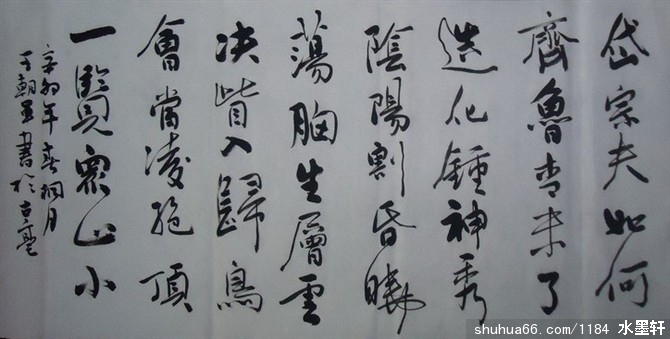 岱宗夫如何
齊魯青未了
造化鍾神秀
陰陽割昏曉
蕩胸生層雲
决眥入歸鳥
會當凌絶頂
一覽眾山小
辛卯年春桐月
朝書於
shuhua66.com/1184 水墨轩